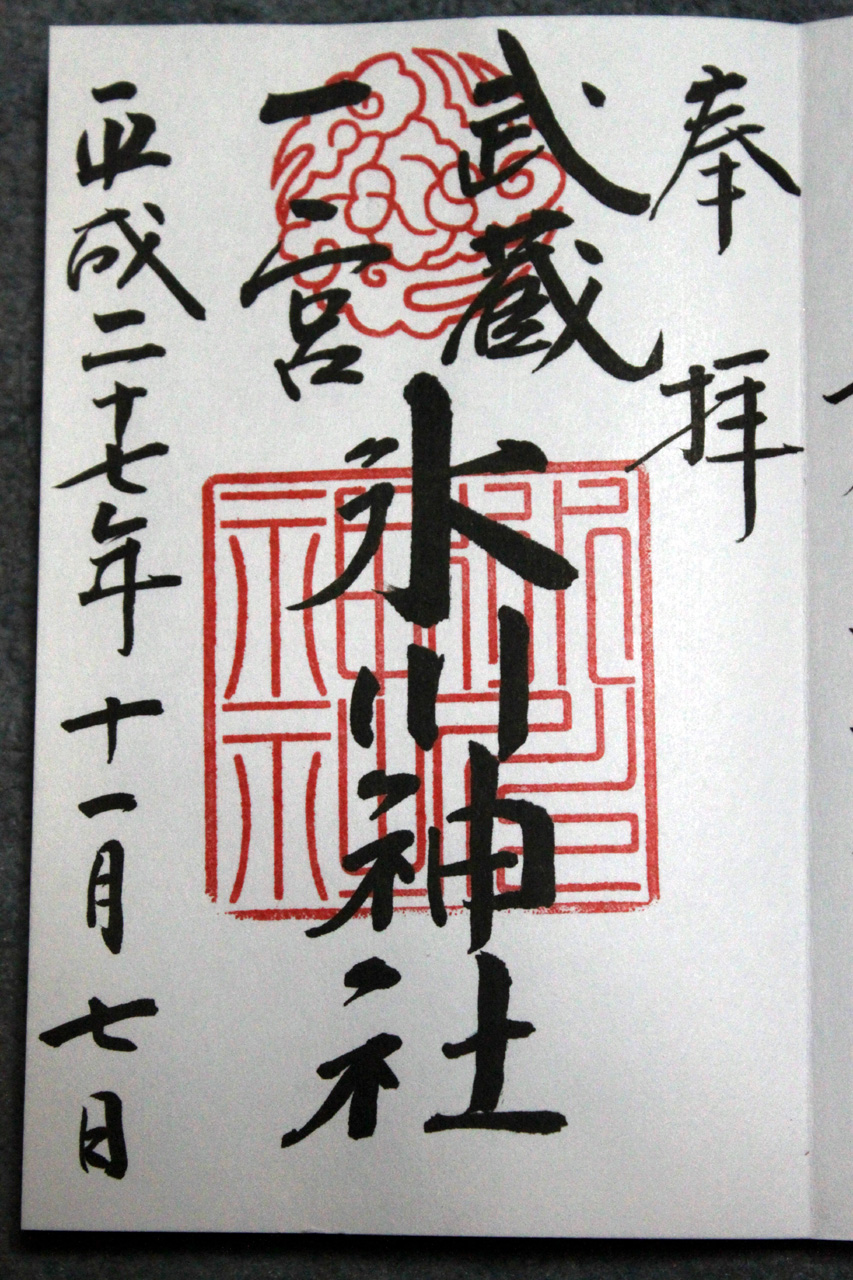 奉拝
武蔵
一宮
氷川神社
平成二十七年十一月七日